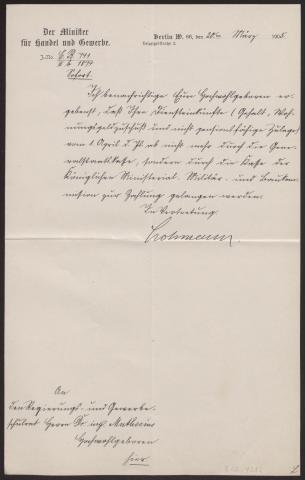 Der Minister
für Handel und Gewerbe.
Berlin W. 66, den 20ten März 1905.
Leipzigerstraße 2.
J.-No.
Sofort.
Ich benachrichtige Euer Hochwohlgeboren er-
gebenst, daß Ihre Diensteinkünfte (Gehalt, Woh-
nungsgeldzuschuß und nicht pensionsfähige Zulage)
vom 1. April d. Js. ab nicht mehr durch die Gene-
ralstaatskasse, sondern durch die Kasse der
Königlichen Ministerial-Militär- und Baukom-
mission zur Zahlung gelangen werden.
In Vertretung.
Lohmann
An
den Regierungs- und Gewerbe-
schulrat Herrn Dr. ing. Muthesius
Hochwohlgeboren
hier